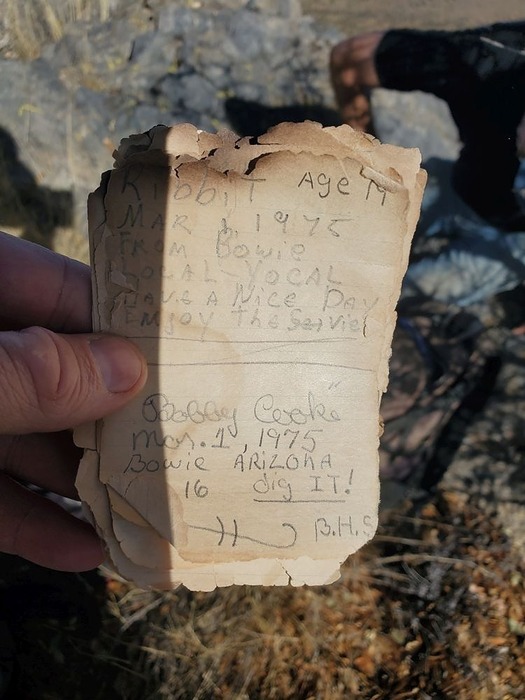 Ribbit Age 19
MAR 1, 1975
FROM Bowie
LOCAL YOCAL
HAVE A Nice DAY
ENJOY The
Bobby Cooke
Mar. 1, 1975
Bowie ARIZONA
16 dig IT!
B.H.S